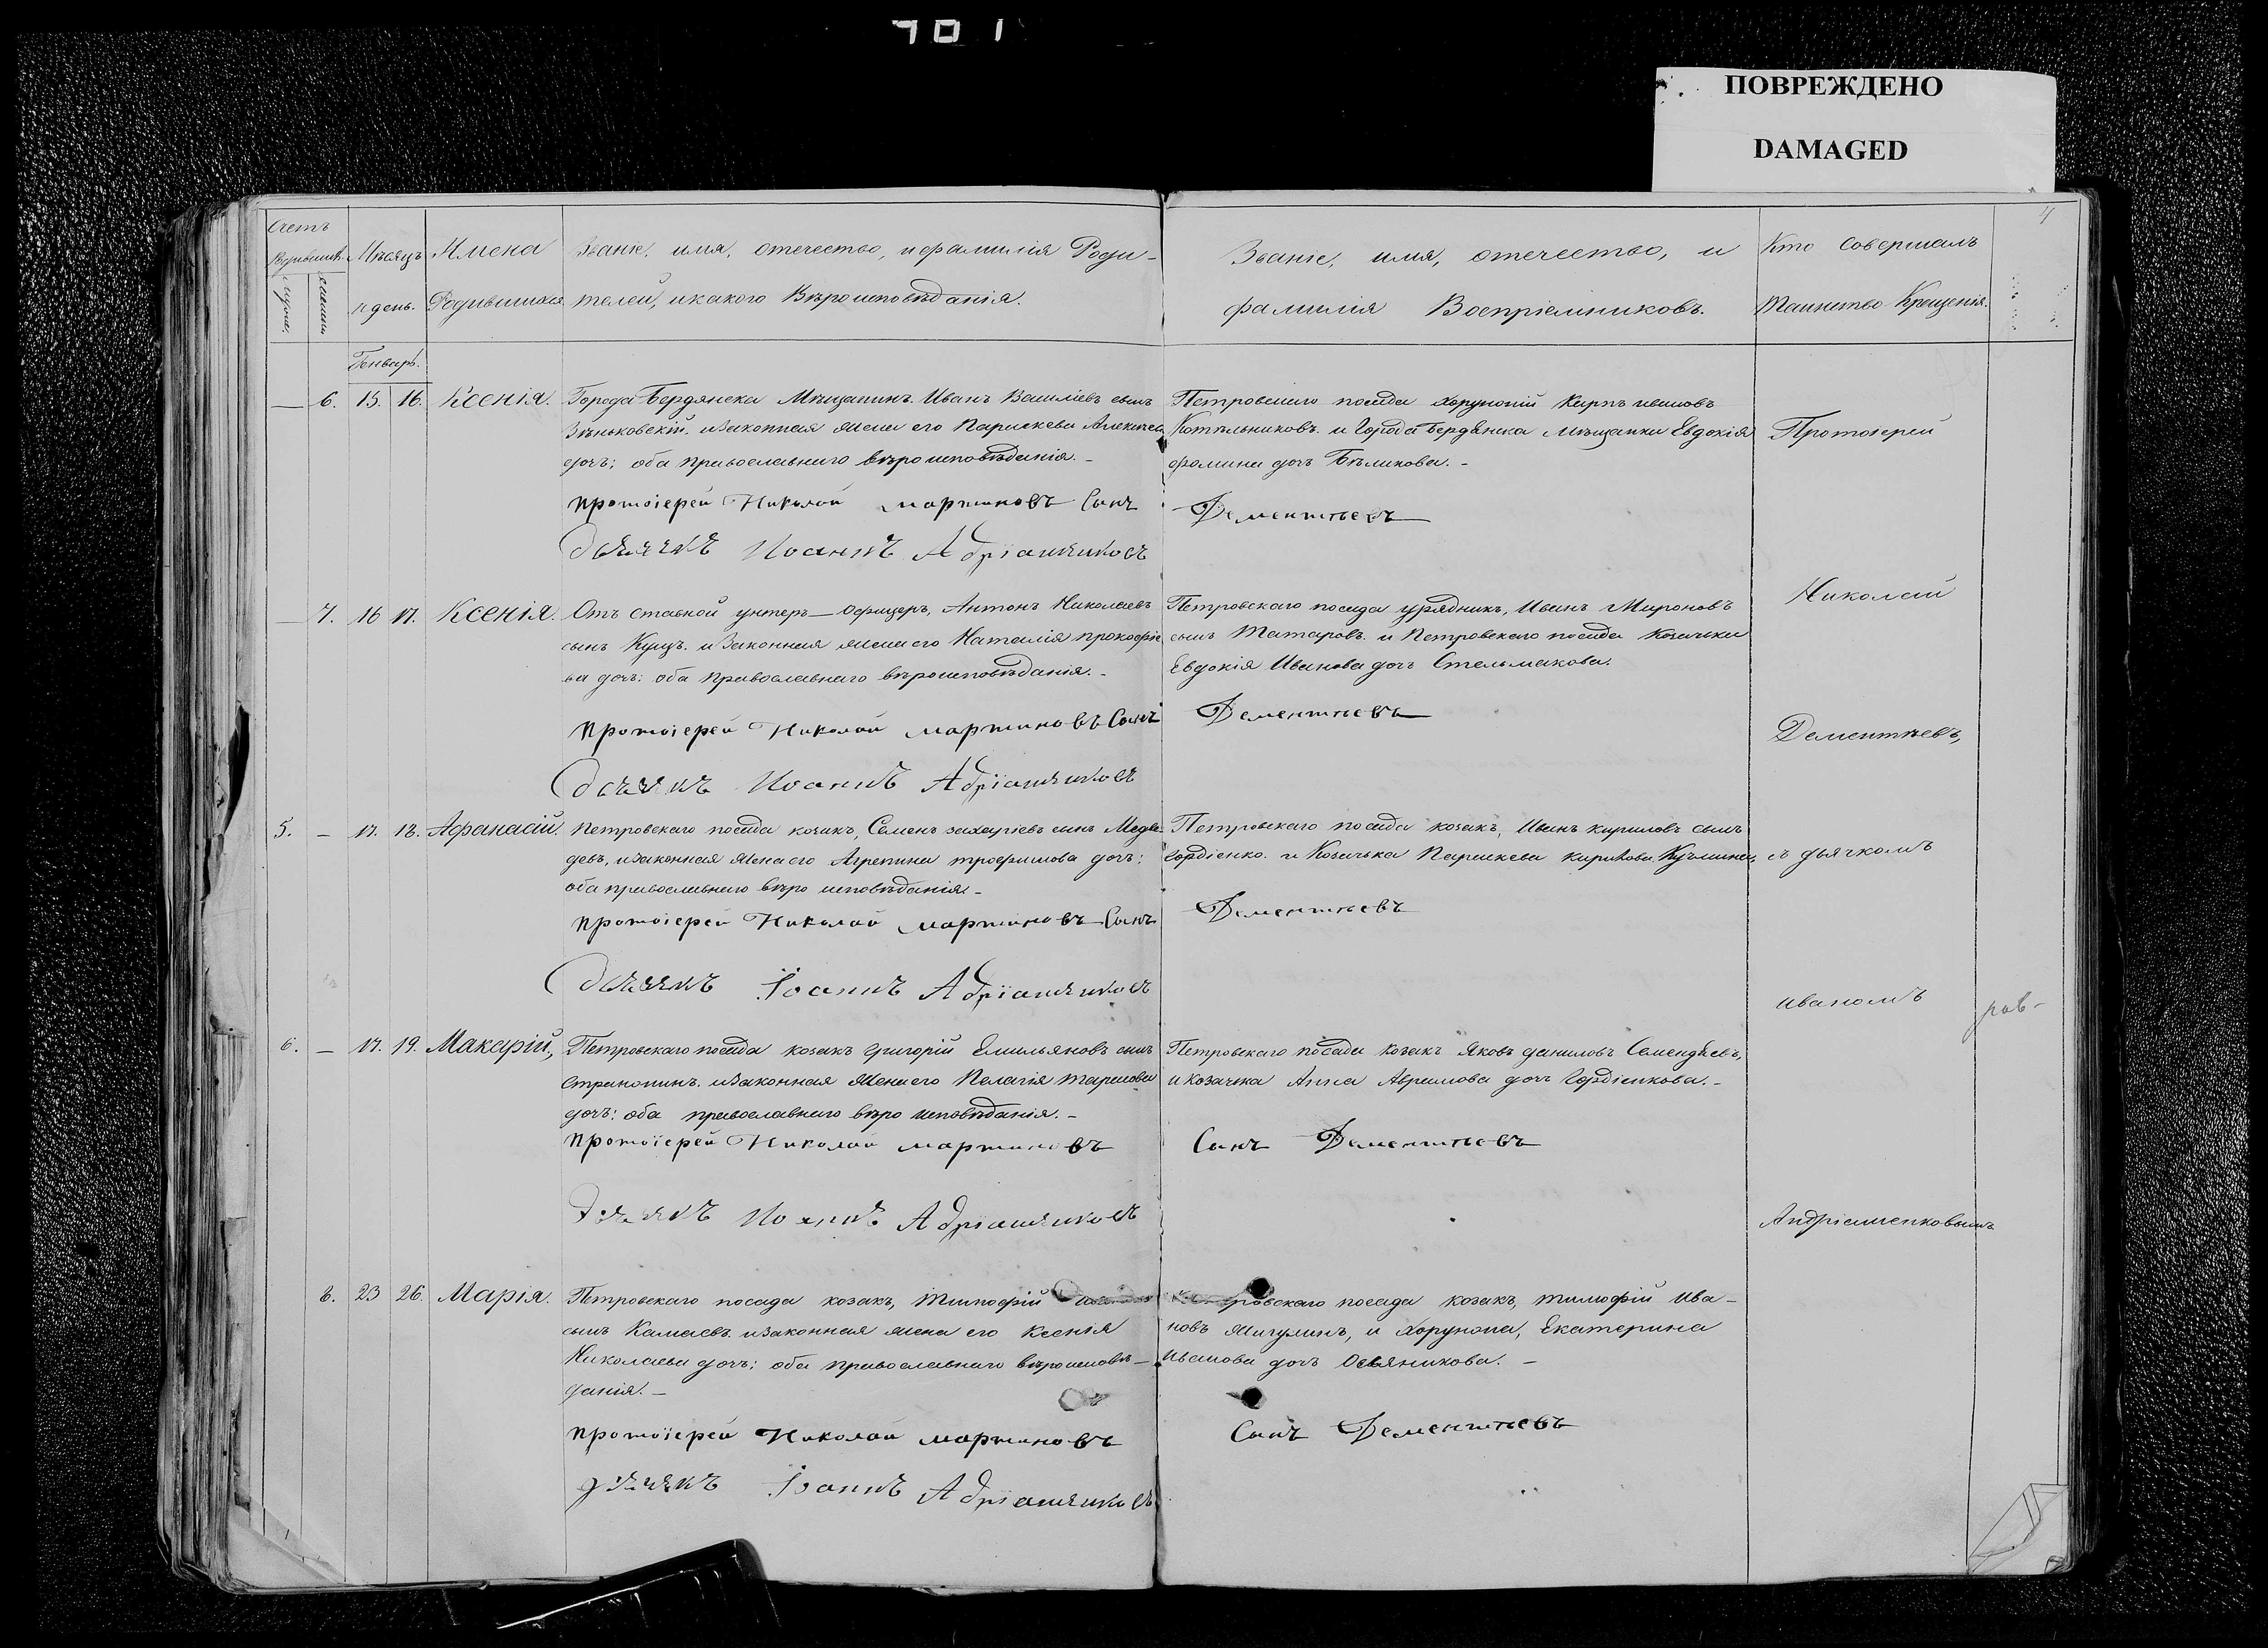 ПОВРЕЖДЕНО
DAMAGED
4
Счетъ
Мѣсяцъ
и день.
Имена
Родившихся
Званіе, имя, отечество, и фамилія Роди-
телей, и какого Вѣроисповѣданія.
Званіе, имя, отечество, и
фамилія Воспріемниковъ.
Кто совершалъ
таинство Крещенія.
Генварь.
— 6. 15. 16. Ксенія.
Города Бердянска Мѣщанинъ Иванъ Василіевъ сынъ
Зѣньковскій, и законная жена его Параскева Алексѣева
дочъ; оба православнаго вѣроисповѣданія. -
протоіерей Николай мартиновъ Сынъ
Дьячекъ Иоаннъ Адріашенковъ
Петровскаго посада хорунжій Карпъ ивановъ
Котѣльниковъ. и Города Бердянска мѣщанка Евдокія
фомина дочъ Бѣликова. -
Дементьевъ
— 7. 16 17. Ксенія.
Отъ ставной унтеръ-офицеръ, Антонъ Николаевъ
сынъ Куцъ. и законная жена его Наталія прокофіе
ва дочъ: оба православнаго вѣроисповѣданія. -
протоіерей Николай мартиновъ Сынъ
Дьячекъ Иоаннъ Адріашенковъ
Петровскаго посада урядникъ, Иванъ Мироновъ
сынъ Татаровъ. и Петровскаго посада Козачка
Евдокія Иванова дочъ Стельмахова.
Дементьевъ
5. — 17. 18. Афанасій.
Петровскаго посада козакъ, Семенъ захаріевъ сынъ Медве-
девъ, и законная жена его Агрепина трофимова дочъ:
оба православнаго вѣро исповѣданія -
протоіерей Николай мартиновъ Сынъ
Дьячекъ Іоаннъ Адріашенковъ
Петровскаго посада козакъ, Иванъ кириловъ сынъ
Гордіенко. и Козачька Параскева
Дементьевъ
6. — 17. 19. Макарій,
Петровскаго посада козакъ григорій Емильяновъ сынъ
и законная жена его Пелагія тарасова
дочъ: оба православнаго вѣро исповѣданія. -
протоіерей Николай мартиновъ
Дьячекъ Иоаннъ Адріашенковъ
Петровскаго посада козакъ Яковъ даниловъ Семендяевъ,
и козачка Анна Аврамова дочъ Гордіенкова. -
Сынъ Дементьевъ
8. 23 26. Марія.
Петровскаго посада козакъ,
сынъ Камаевъ и законная жена его Ксенія
Николаева дочъ; оба православнаго вѣроисповѣ-
данія. -
протоіерей Николай мартиновъ
Дьячекъ Іоаннъ Адріашенковъ
посада козакъ, тимофій ива-
новъ Мигулинъ, и Хорунжа, Екатерина
Иванова дочъ Овсяникова. -
Сынъ Дементьевъ
Протоіерей
Николай
Дементьевъ,
съ дьячкомъ
иваномъ
Андріашенковымъ